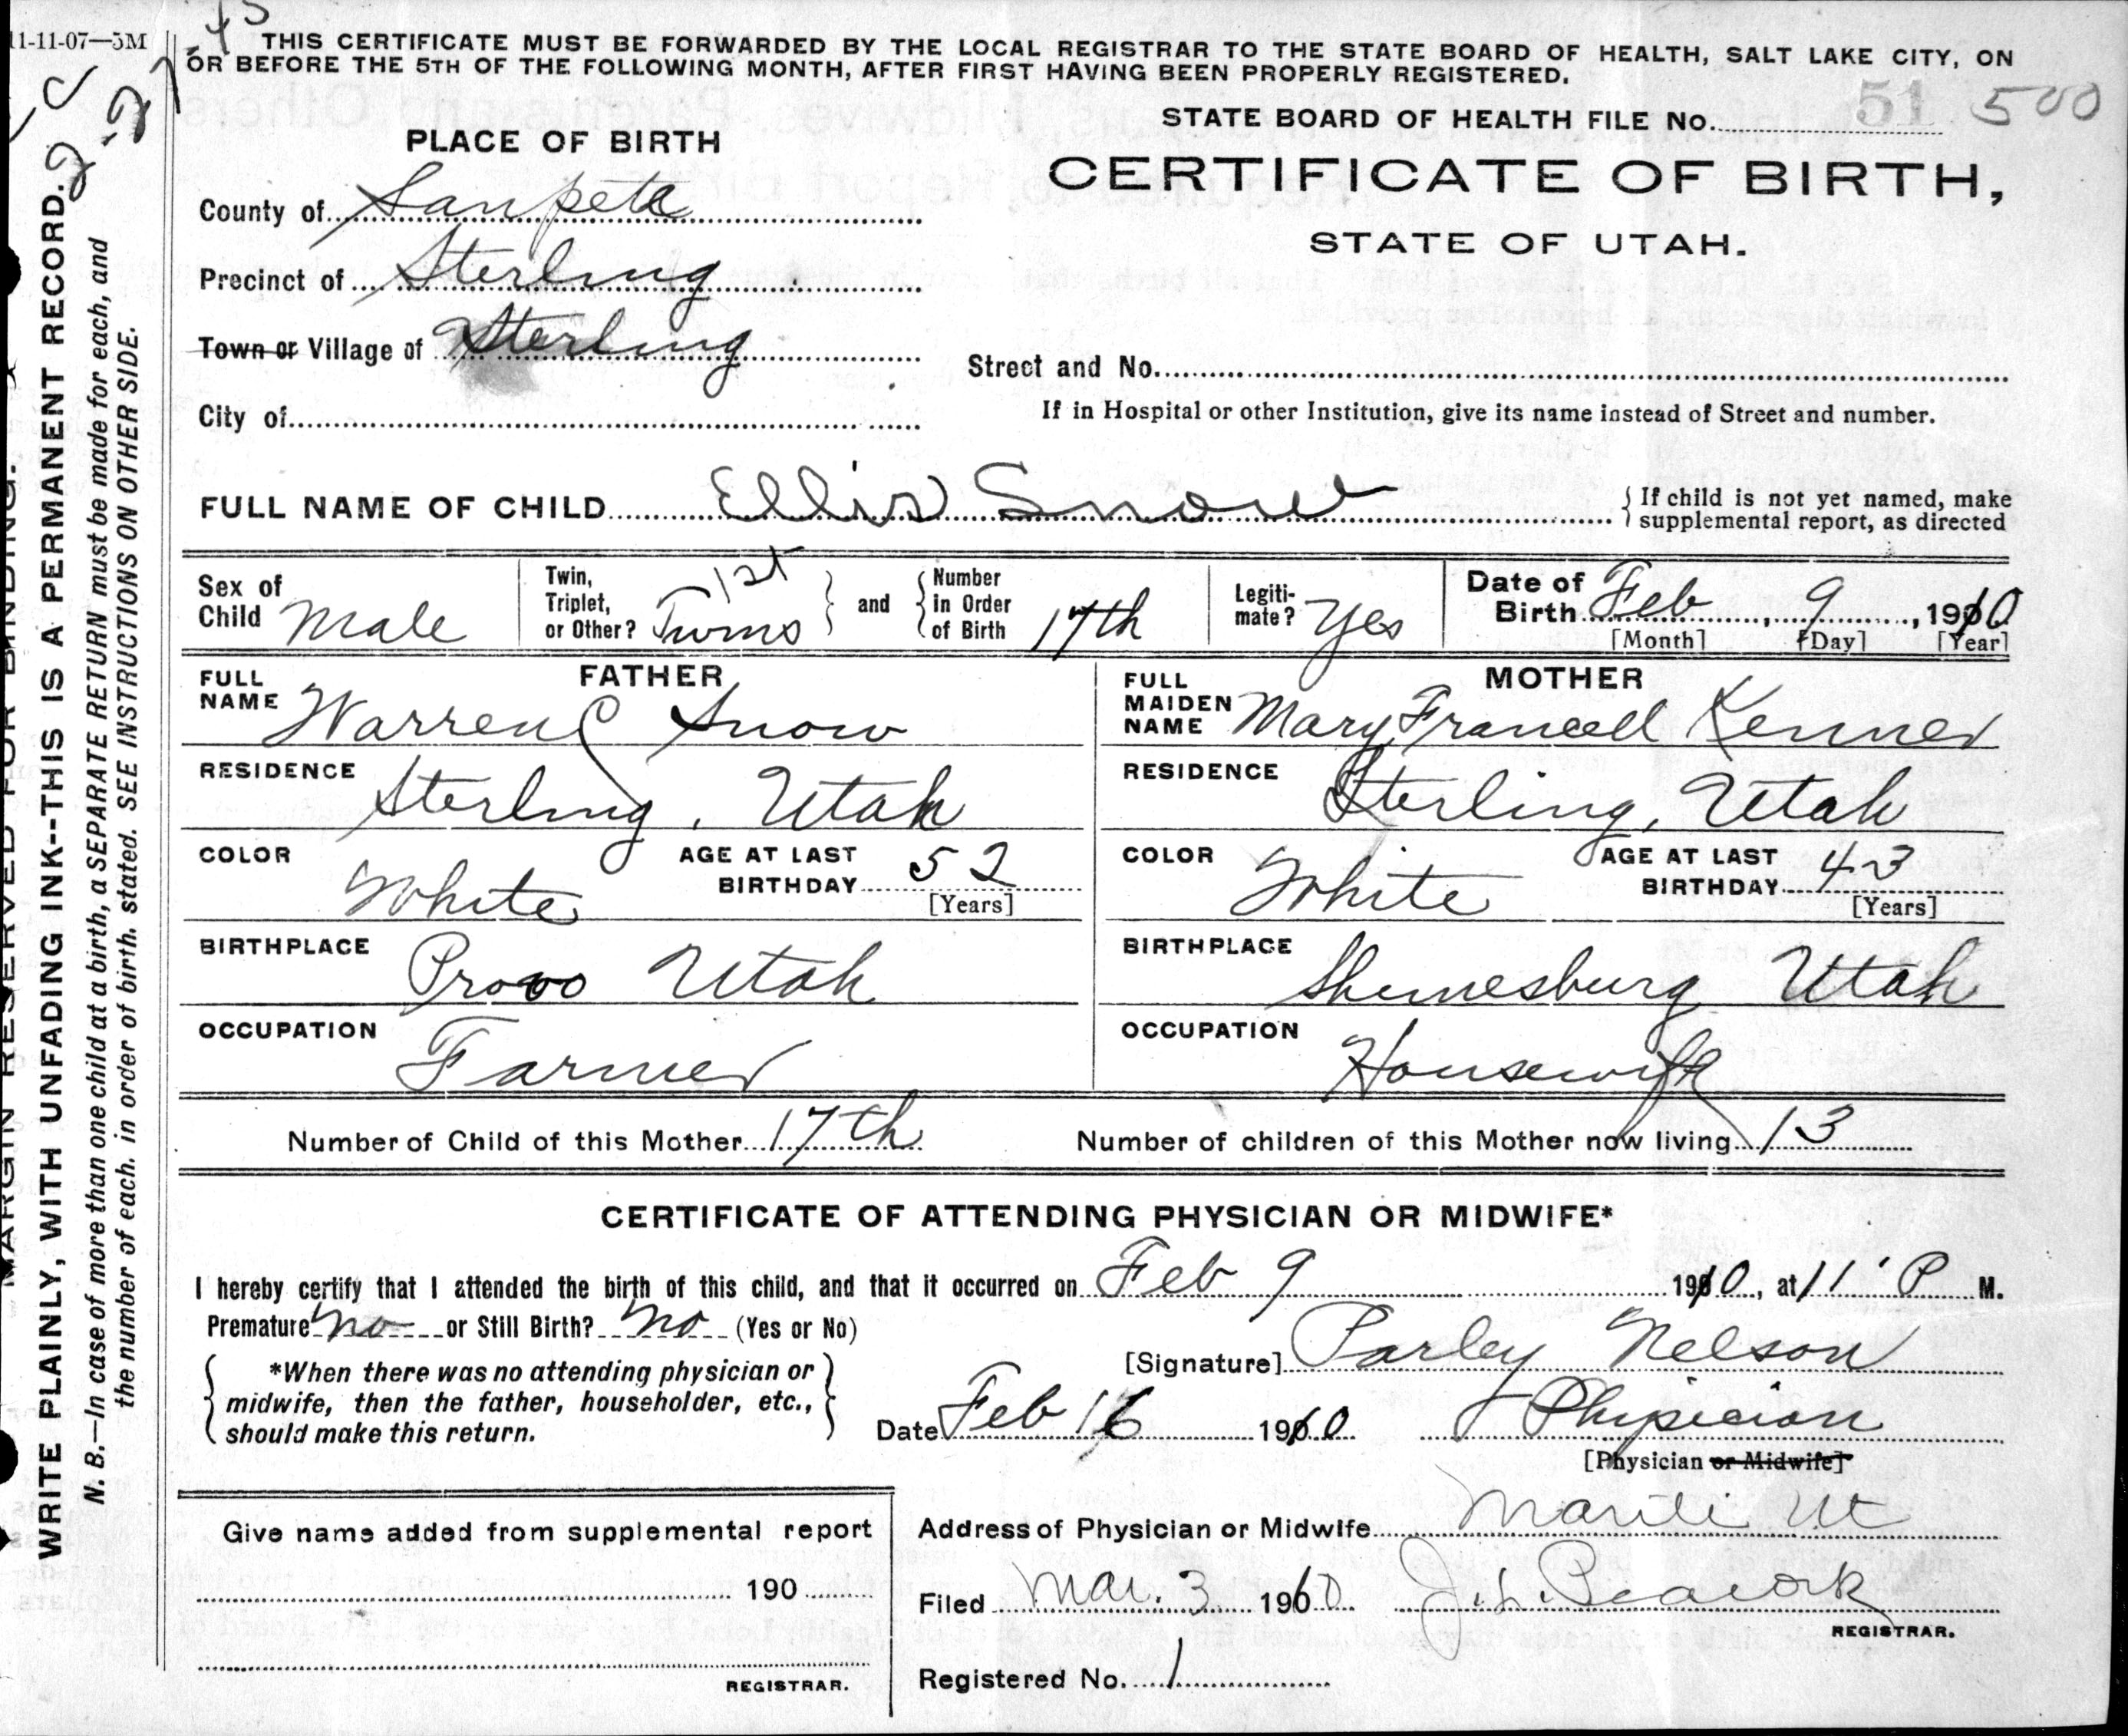 11-11-07—5M
THIS CERTIFICATE MUST BE FORWARDED BY THE LOCAL REGISTRAR TO THE STATE BOARD OF HEALTH, SALT LAKE CITY, ON
OR BEFORE THE 5TH OF THE FOLLOWING MONTH, AFTER FIRST HAVING BEEN PROPERLY REGISTERED.
STATE BOARD OF HEALTH FILE No. 51 500
PLACE OF BIRTH
CERTIFICATE OF BIRTH,
STATE OF UTAH.
County of Sanpete
Precinct of Sterling
Town or Village of Sterling
Street and No.
City of
If in Hospital or other Institution, give its name instead of Street and number.
FULL NAME OF CHILD Ellis Snow
If child is not yet named, make
supplemental report, as directed
Sex of Child Male
Twin, Triplet, or Other? Twins 1st
and
Number in Order of Birth 17th
Legiti-mate? Yes
Date of Birth Feb, 9, 1910
[Month] [Day] [Year]
FATHER
FULL NAME Warren C Snow
RESIDENCE Sterling, Utah
COLOR White
AGE AT LAST BIRTHDAY 52
[Years]
BIRTHPLACE Provo Utah
OCCUPATION Farmer
MOTHER
FULL MAIDEN NAME Mary Kenner
RESIDENCE Sterling, Utah
COLOR White
AGE AT LAST BIRTHDAY 43
[Years]
BIRTHPLACE Utah
OCCUPATION Housewife
Number of Child of this Mother 17th
Number of children of this Mother now living 13
CERTIFICATE OF ATTENDING PHYSICIAN OR MIDWIFE*
I hereby certify that I attended the birth of this child, and that it occurred on Feb 9 1910, at 11 P M.
Premature no or Still Birth? no (Yes or No)
*When there was no attending physician or
midwife, then the father, householder, etc.,
should make this return.
[Signature] Parley Nelson
Date Feb 16 1910 Physician
[Physician or Midwife]
Give name added from supplemental report
190
REGISTRAR.
Address of Physician or Midwife Manti Ut
Filed Mar. 3 1910 J. L. Peacock
REGISTRAR.
Registered No. 1
MARGIN RESERVED FOR BINDING.
WRITE PLAINLY, WITH UNFADING INK--THIS IS A PERMANENT RECORD.
N. B.—In case of more than one child at a birth, a SEPARATE RETURN must be made for each, and
the number of each, in order of birth, stated. SEE INSTRUCTIONS ON OTHER SIDE.